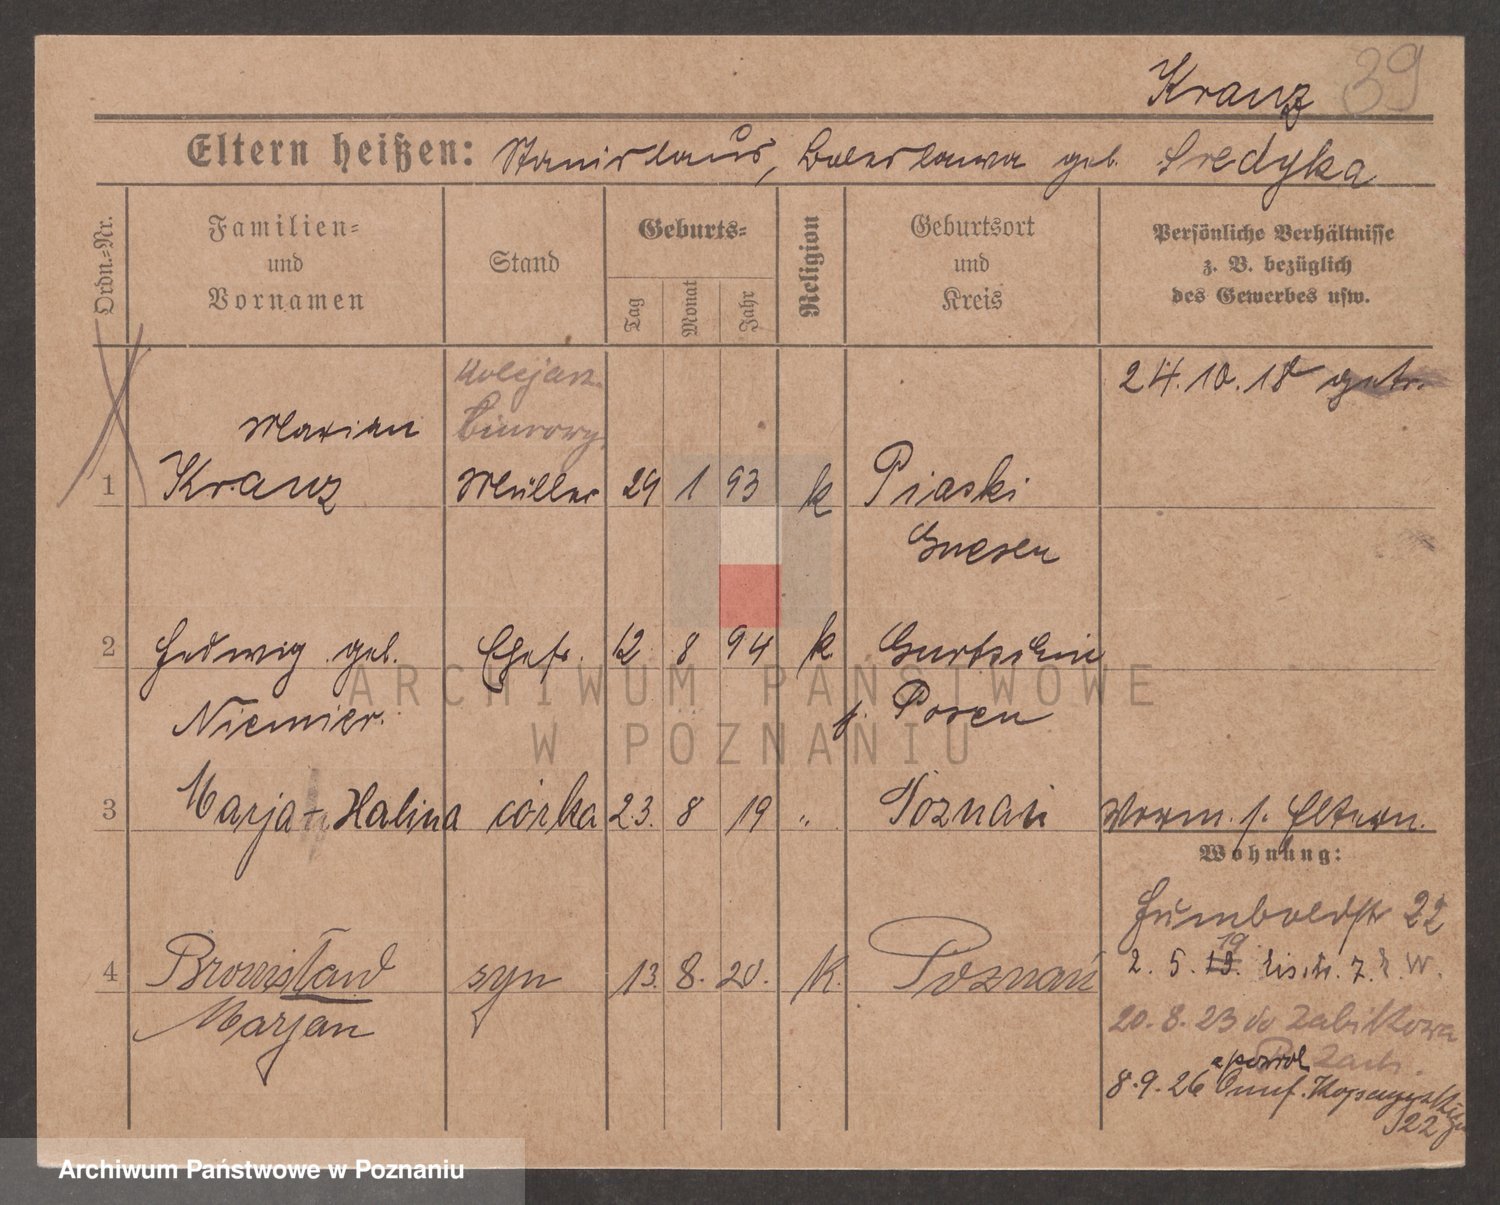 Kranz 39
Eltern heißen: Stanislaus, Boleslawa geb. Sredzka
Ordn.-Nr.
Familien-
und
Vornamen
Stand
Geburts-
Tag
Monat
Jahr
Religion
Geburtsort
und
Kreis
Persönliche Verhältnisse
z. B. bezüglich
des Gewerbes usw.
24.10.18 getr.
kolejarz
biurowy
Marian
1 Kranz Müller 29 1 93 k Piaski
Gnesen
2 Hedwig geb. Ehefr. 12 8 94 k Gurtschin
Niemier. Posen
3 Marja Halina córka 23. 8 19 " Poznań Vorm. s. Eltern.
Wohnung:
Humboldtstr 22
19
4 Bronisław syn 13. 8. 20. k. Poznań 2. 5. 19. 7. W.
Marjan
20.8.23 do Żabikowa
8.9.26
22
ARCHIWUM PAŃSTWOWE
W POZNANIU
Archiwum Państwowe w Poznaniu